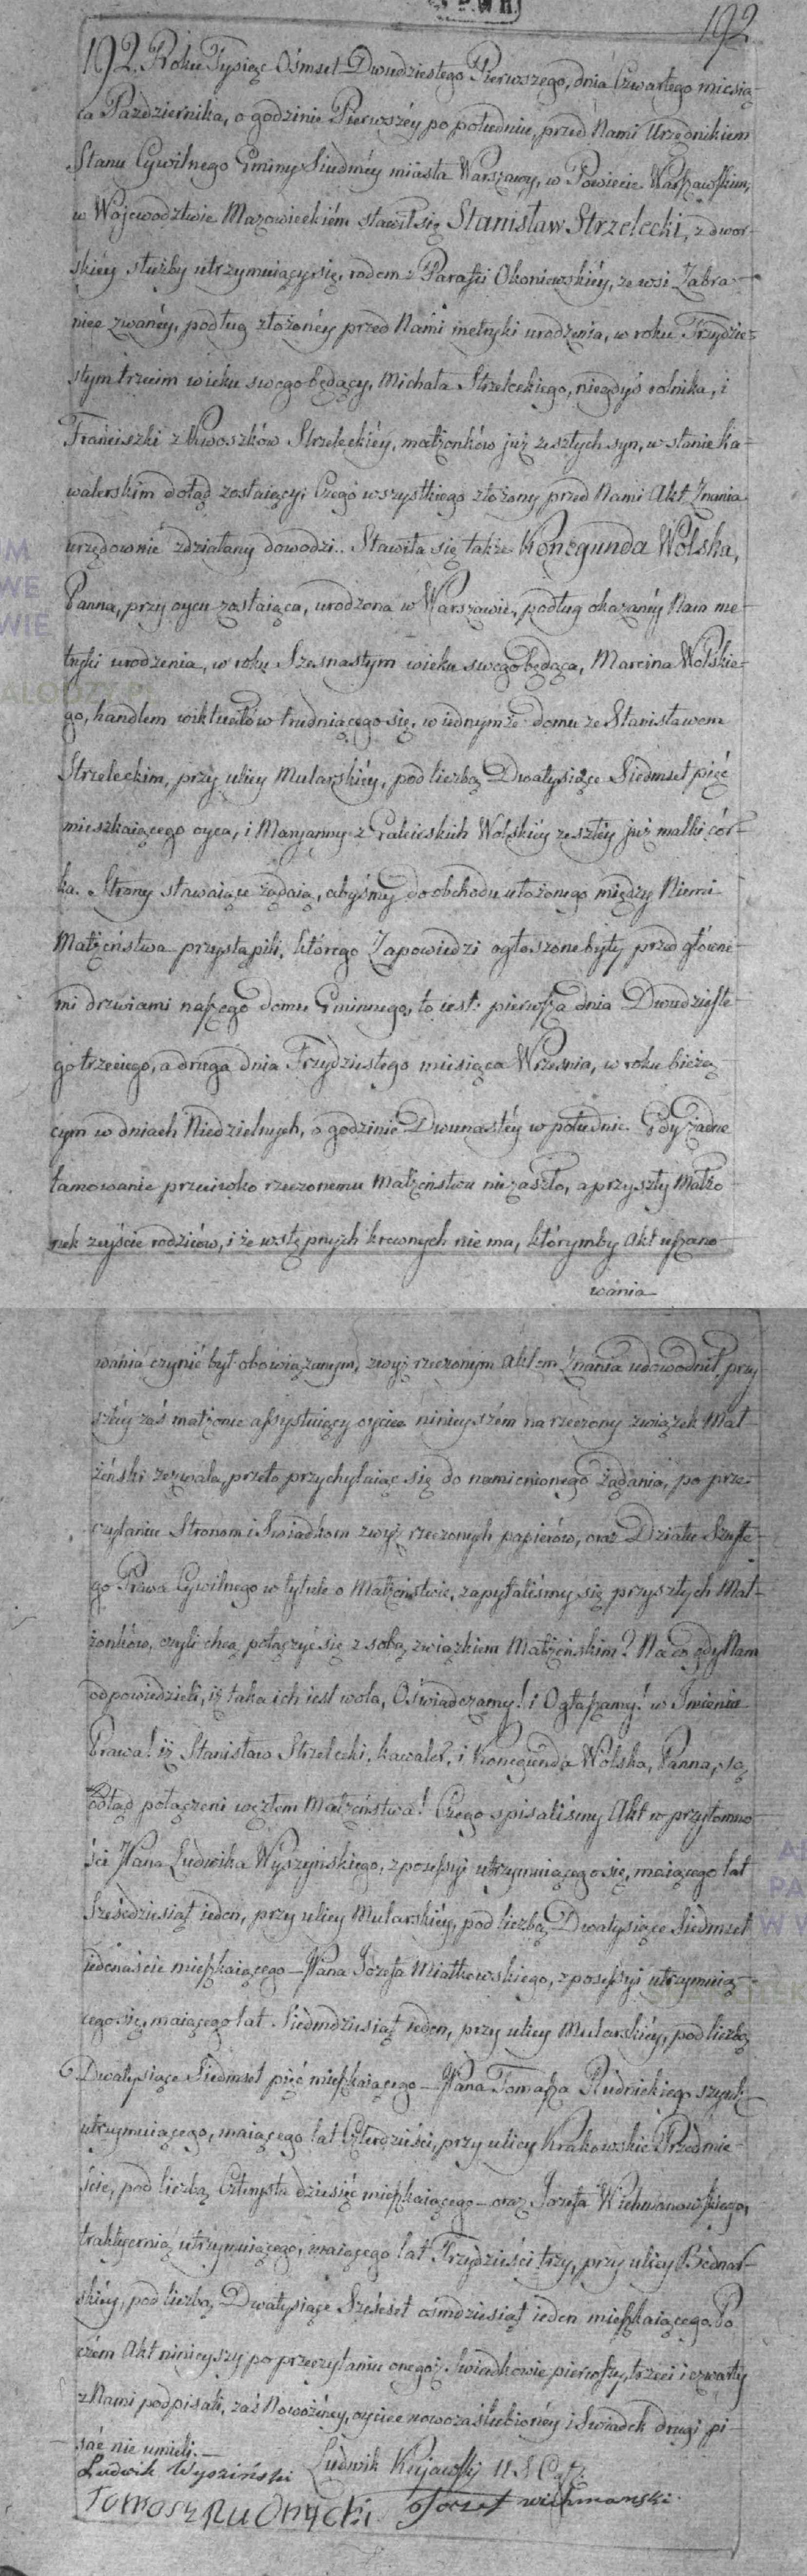 192
192. Roku Tysiąc Ośmset Dwudziestego Pierwszego, dnia Czwartego miesią-
ca Października, o godzinie Pierwszéy po południu, przed Nami Urzędnikiem
Stanu Cywilnego Gminy Siódméy miasta Warszawy, w Powiecie Warszawskim,
w Województwie Mazowieckiém stawił się Stanisław Strzelecki, z dwor-
skiéy służby utrzymuiący się, rodem z Parafii Okoniewskiéy, ze wsi Zabra-
niec zwanéy, podług złożonéy przed Nami metryki urodzenia, w roku Trzydzie-
stym trzecim wieku swego będący, Michała Strzeleckiego, niegdyś rolnika, i
Franciszki z Strzeleckiéy, małżonków już zeszłych syn, w stanie ka-
walerskim dotąd zostaiący; Czego wszystkiego złożony przed Nami Akt Znania
urzędownie zdziałany dowodzi.. Stawiła się także Konegunda Wolska,
Panna, przy oycu zostaiąca, urodzona w Warszawie, podług okazanéy Nam me-
tryki urodzenia, w roku Szesnastym wieku swego będąca, Marcina Wolskie-
go, handlem wiktuałów trudniącego się, w iednymże domu ze Stanisławem
Strzeleckim, przy ulicy Mularskiéy, pod liczbą Dwatysiące Siedmset pięć
mieszkaiącego oyca, i Maryanny z Wolskiéy zeszłéy już matki cór-
ka. Strony stawaiące żądaią, abyśmy do obchodu ułożonego między Niemi
Małżeństwa przystąpili, którego Zapowiedzi ogłoszone były przed główne-
mi drzwiami naszego domu Gminnego, to iest: pierwsza dnia Dwudzieste-
go trzeciego, a druga dnia Trzydziestego miesiąca Września, w roku bieżą-
cym w dniach Niedzielnych, o godzinie Dwunastéy w południe. Gdy żadne
tamowanie przeciwko rzeczonemu Małżeństwu nie zaszło, a przyszły Małżo-
nek zeyście rodziców, i że wstępnych krewnych nie ma, którymby Akt uszano-
wania
wania czynić był obowiązanym, zwyż rzeczonym Aktem Znania udowodnił, przy-
szłéy zaś małżonce assystuiący oyciec ninieyszém na rzeczony związek Mał-
żeński zezwala, przeto przychylaiąc się do namienionego żądania, po prze-
czytaniu Stronom i Świadkom zwyż rzeczonych papierów, oraz Działu Szóste-
go Prawa Cywilnego w tytule o Małżeństwie, zapytaliśmy się przyszłych Mał-
żonków, czyli chcą połączyć się z sobą związkiem Małżeńskim? Na co gdy Nam
odpowiedzieli, iż taka ich iest wola, Oświadczamy! i Ogłaszamy! w Imieniu
Prawa! iż Stanisław Strzelecki, kawaler, i Konegunda Wolska, Panna, są
odtąd połączeni węzłem Małżeństwa! Czego spisaliśmy Akt w przytomno-
ści JPana Ludwika Wyszyńskiego, z posessyi utrzymuiącego się, maiącego lat
Sześćdziesiąt ieden, przy ulicy Mularskiéy, pod liczbą Dwatysiące Siedmset
iedenaście mieszkaiącego – JPana Józefa Miałkowskiego, z posessyi utrzymuią-
cego się, maiącego lat Siedmdziesiąt ieden, przy ulicy Mularskiéy, pod liczbą
Dwatysiące Siedmset pięć mieszkaiącego – JPana Tomasza Rudnickiego szynk
utrzymuiącego, maiącego lat Czterdzieści, przy ulicy Krakowskie Przedmie-
ście, pod liczbą Czterysta dziesięć mieszkaiącego – oraz Józefa Wichmanowskiego,
traktyernią utrzymuiącego, maiącego lat Trzydzieści trzy, przy ulicy Bednar-
skiéy, pod liczbą Dwatysiące Sześćset ośmdziesiąt ieden mieszkaiącego. Po
czém Akt ninieyszy po przeczytaniu onegoż Świadkowie pierwszy, trzeci i czwarty
z Nami podpisali, zaś Nowożeńcy, oyciec nowozaślubionéy i Świadek drugi pi-
sać nie umieli. –
Ludwik Wyszinski Ludwik
Tomasz Rudnycki Jozef wichmanski